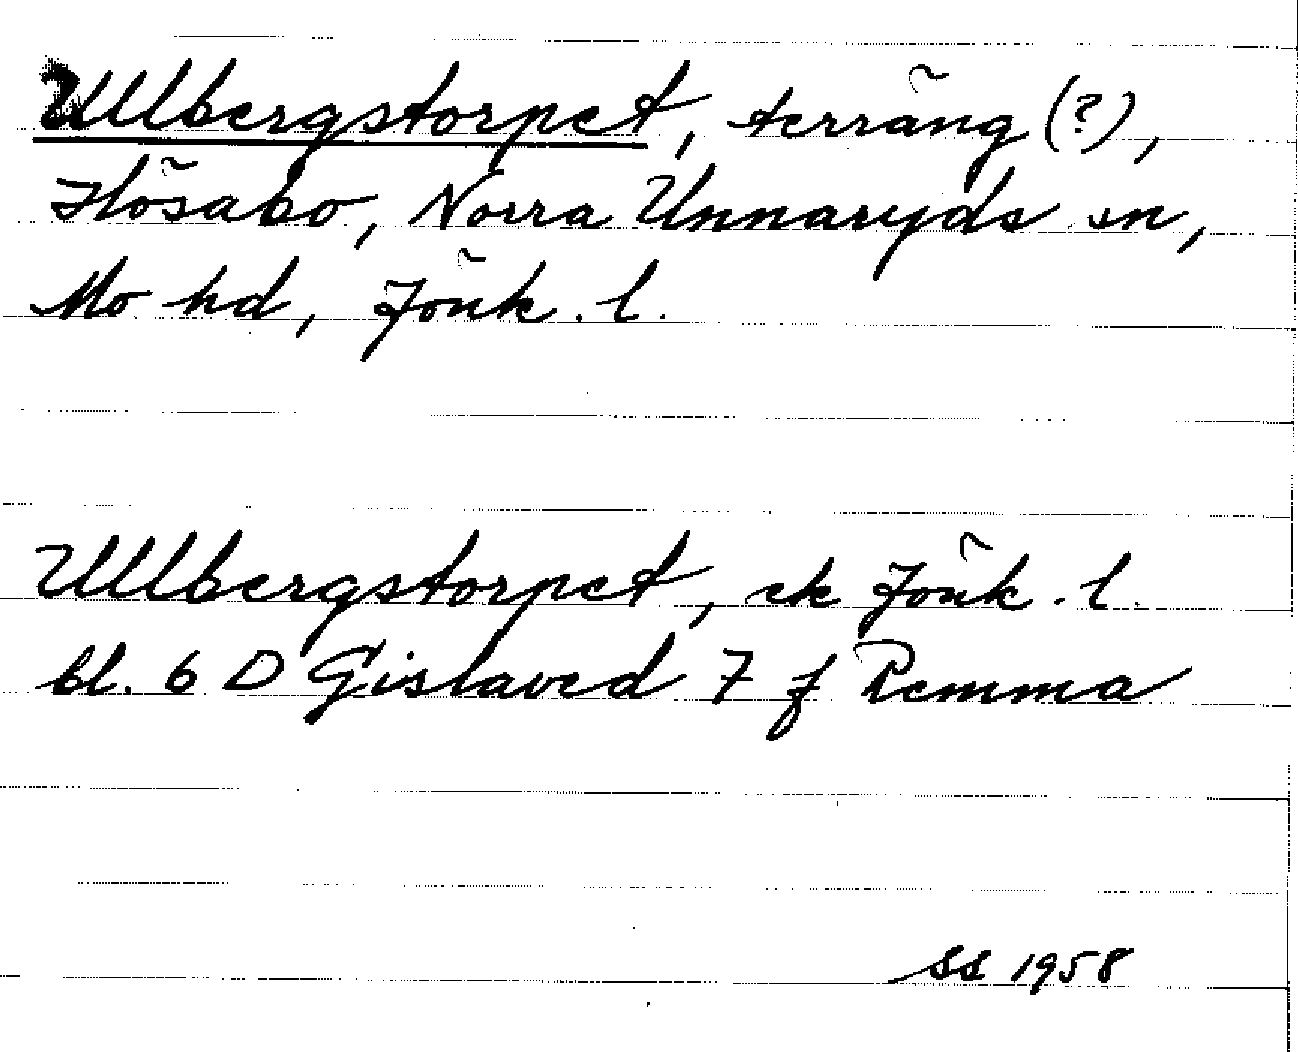 Ullbergstorpet, terräng (?),
Flösabo, Norra Unnaryds sn,
Mo hd, Jönk. l.
Ullbergstorpet, ek Jönk. l.
bl. 6 D Gislaved 7 f Remma
SS 1958